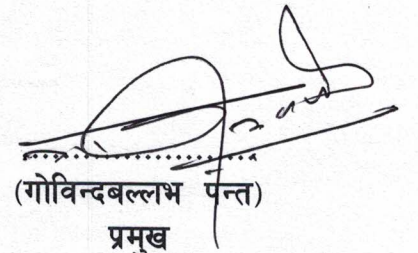 (गोविन्दबल्लभ पन्त)
प्रमुख